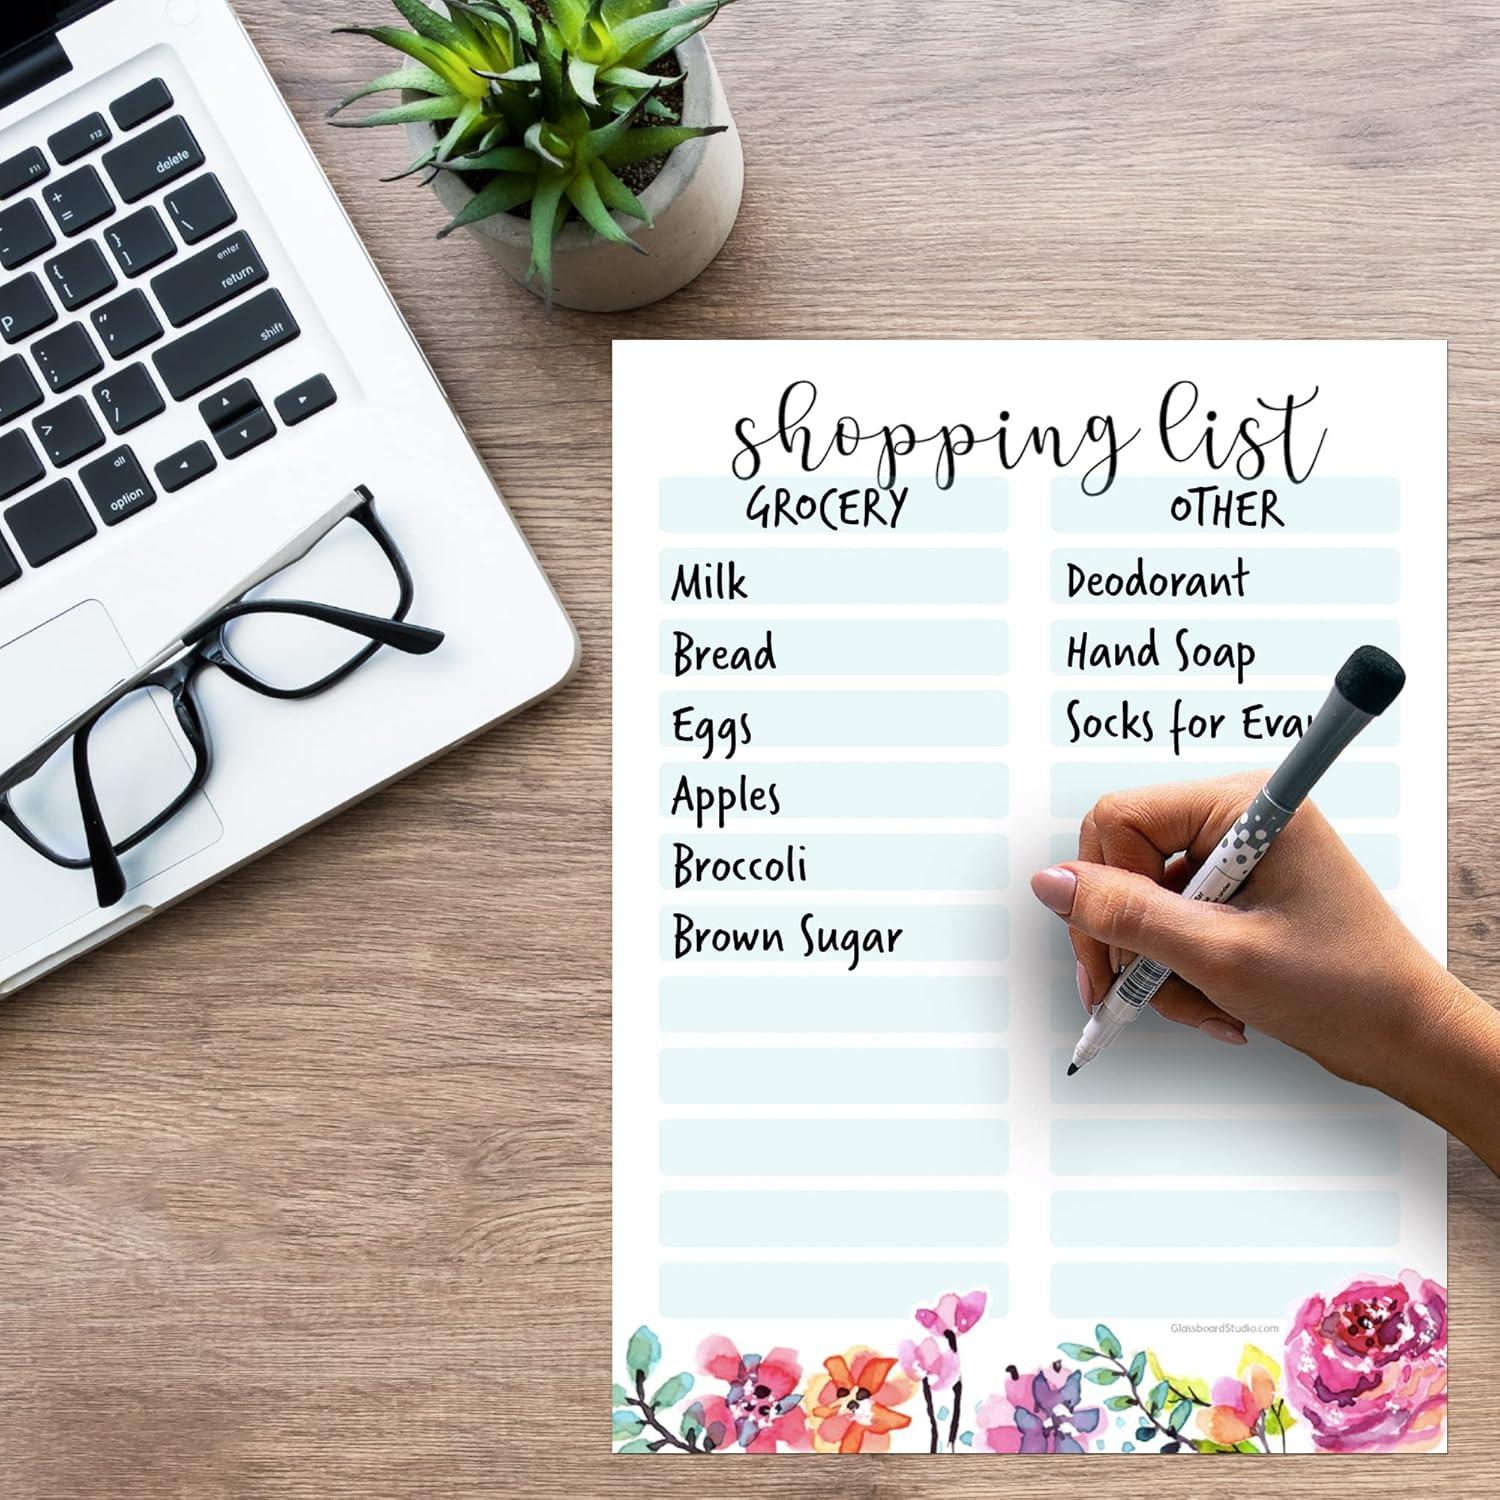 shopping list
GROCERY
Milk
Bread
Eggs
Apples
Broccoli
Brown Sugar
OTHER
Deodorant
Hand Soap
Socks for
GlassboardStudio.com
F11
F12
delete
+
=
-
|
\
}
]
{
[
enter
return
P
"
'
:
;
shift
?
/
>
.
alt
option